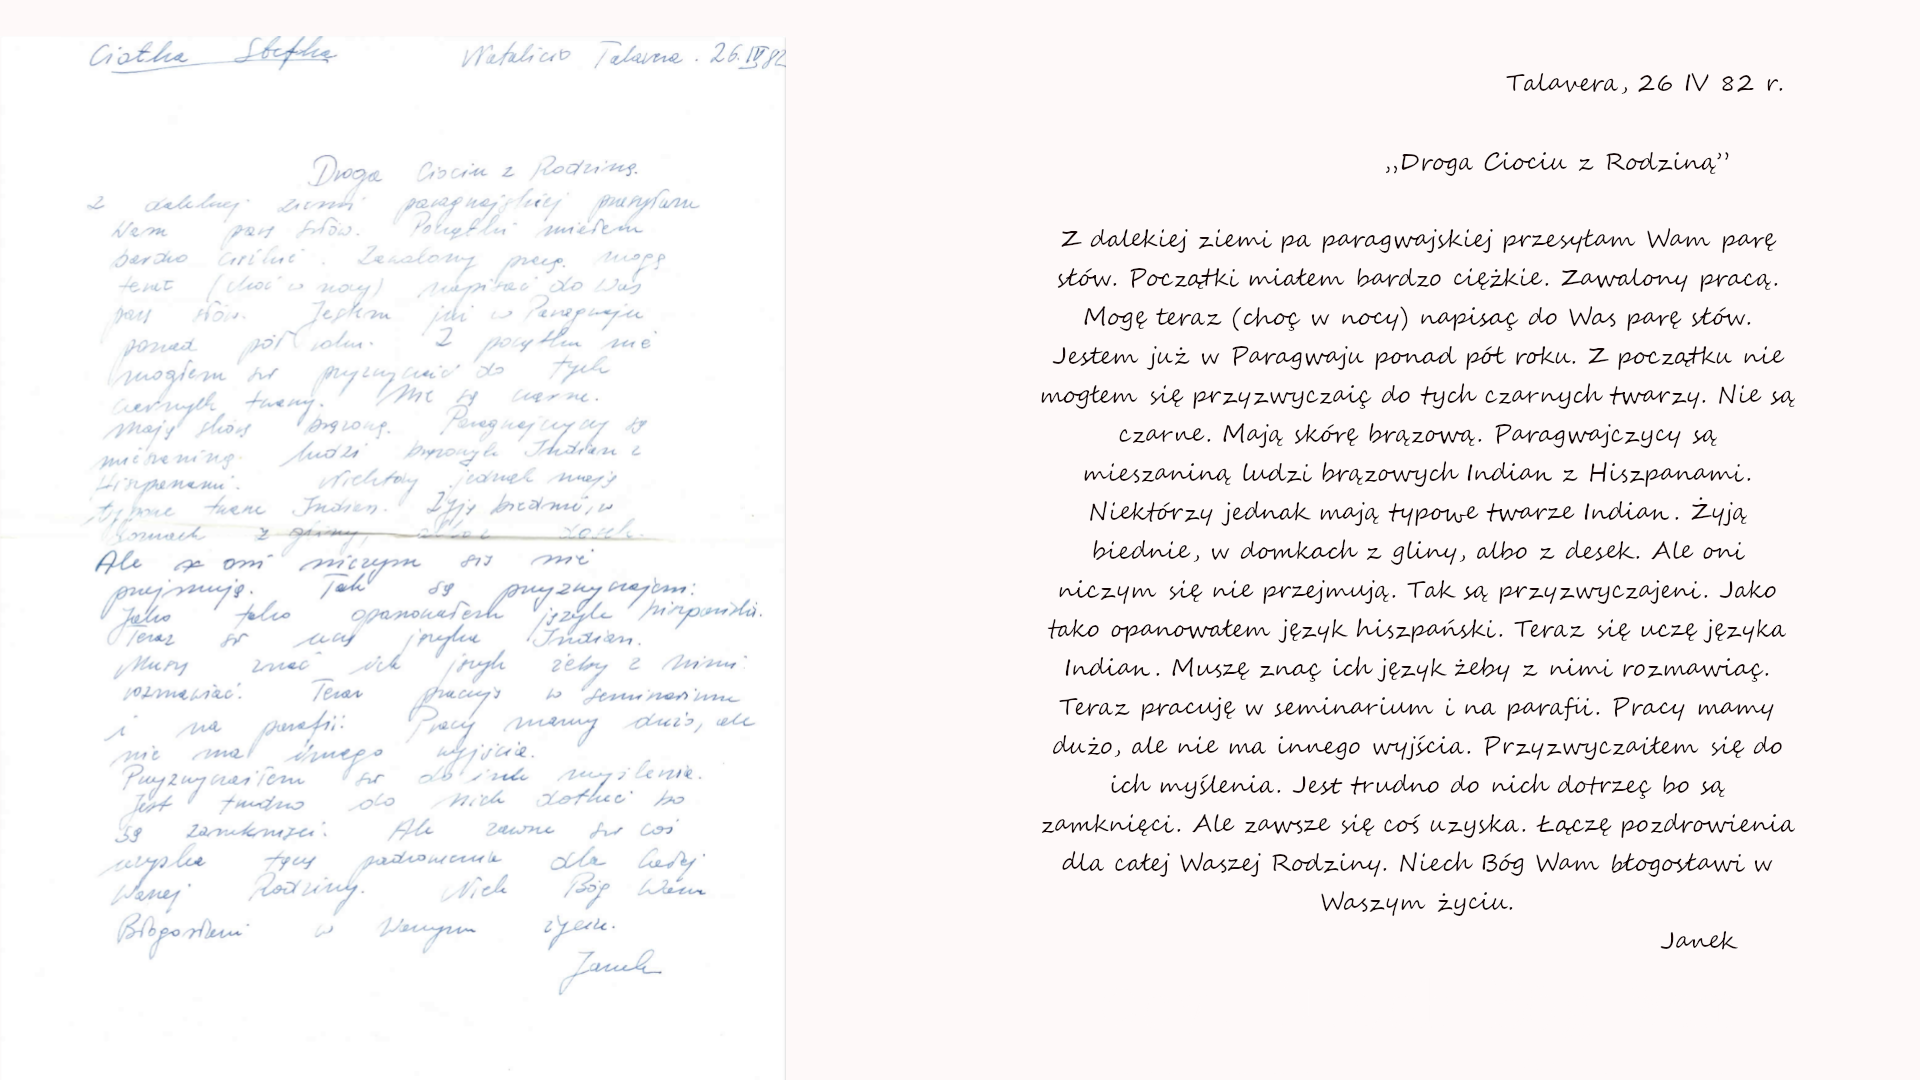 Ciotka Stefka
Natalicio Talavera. 26.IV 82
Droga Ciociu z Rodziną.
Z dalekiej ziemi paragwajskiej przesyłam
Wam parę słów. Początki miałem
bardzo ciężkie. Zawalony pracą. mogę
teraz (choć w nocy) napisać do Was
parę słów. Jestem już w Paragwaju
ponad pół roku. Z początku nie
mogłem się przyzwyczaić do tych
czarnych twarzy. Nie są czarne.
Mają skórę brązową. Paragwajczycy są
mieszaniną ludzi brązowych Indian z
Hiszpanami. Niektórzy jednak mają
typowe twarze Indian. Żyją biednie, w
domkach z gliny, albo z desek.
Ale oni niczym się nie
przejmują. Tak są przyzwyczajeni.
Jako tako opanowałem język hiszpański.
Teraz się uczę języka Indian.
Muszę znać ich język żeby z nimi
rozmawiać. Teraz pracuję w seminarium
i na parafii. Pracy mamy dużo, ale
nie ma innego wyjścia.
Przyzwyczaiłem się do ich myślenia.
Jest trudno do nich dotrzeć bo
są zamknięci. Ale zawsze się coś
uzyska Łączę pozdrowienia dla całej
Waszej Rodziny. Niech Bóg Wam
Błogosławi w Waszym życiu.
Janek
Talavera, 26 IV 82 r.
„Droga Ciociu z Rodziną”
Z dalekiej ziemi pa paragwajskiej przesyłam Wam parę
słów. Początki miałem bardzo ciężkie. Zawalony pracą.
Mogę teraz (choç w nocy) napisaç do Was parę słów.
Jestem już w Paragwaju ponad pół roku. Z początku nie
mogłem się przyzwyczaiç do tych czarnych twarzy. Nie są
czarne. Mają skórę brązową. Paragwajczycy są
mieszaniną ludzi brązowych Indian z Hiszpanami.
Niektórzy jednak mają typowe twarze Indian. Żyją
biednie, w domkach z gliny, albo z desek. Ale oni
niczym się nie przejmują. Tak są przyzwyczajeni. Jako
tako opanowałem język hiszpański. Teraz się uczę języka
Indian. Muszę znaç ich język żeby z nimi rozmawiaç.
Teraz pracuję w seminarium i na parafii. Pracy mamy
dużo, ale nie ma innego wyjścia. Przyzwyczaiłem się do
ich myślenia. Jest trudno do nich dotrzeç bo są
zamknięci. Ale zawsze się coś uzyska. Łączę pozdrowienia
dla całej Waszej Rodziny. Niech Bóg Wam błogosławi w
Waszym życiu.
Janek